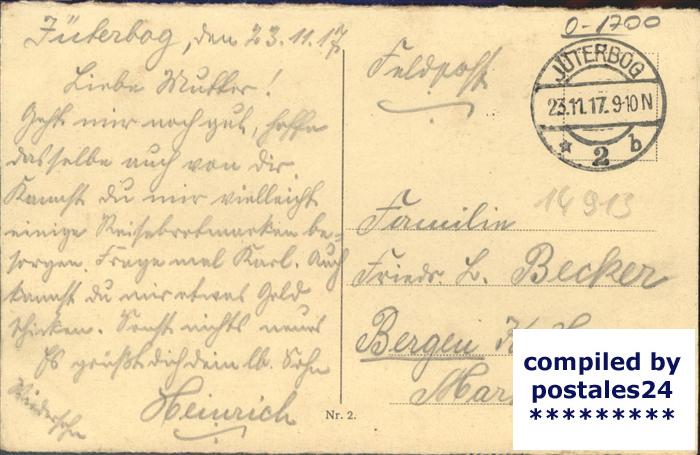 Jüterbog, den 23.11.17
Liebe Mutter!
Geht mir noch gut, hoffe
dasselbe auch von dir.
Kannst du mir vielleicht
einige Reisebrotmarken be-
sorgen. Frage mal Karl. Auch
kannst du mir etwas Geld
schicken. Sonst nichts neues
Es grüßt dich dein lb. Sohn
Heinrich
Wiedersehn
Nr. 2.
O-1700
Feldpost
JÜTERBOG
23.11.17. 9-10 N
* 2 b
14913
Familie
Friedr. L. Becker
Bergen K.
Mar
compiled by
postales24
*********